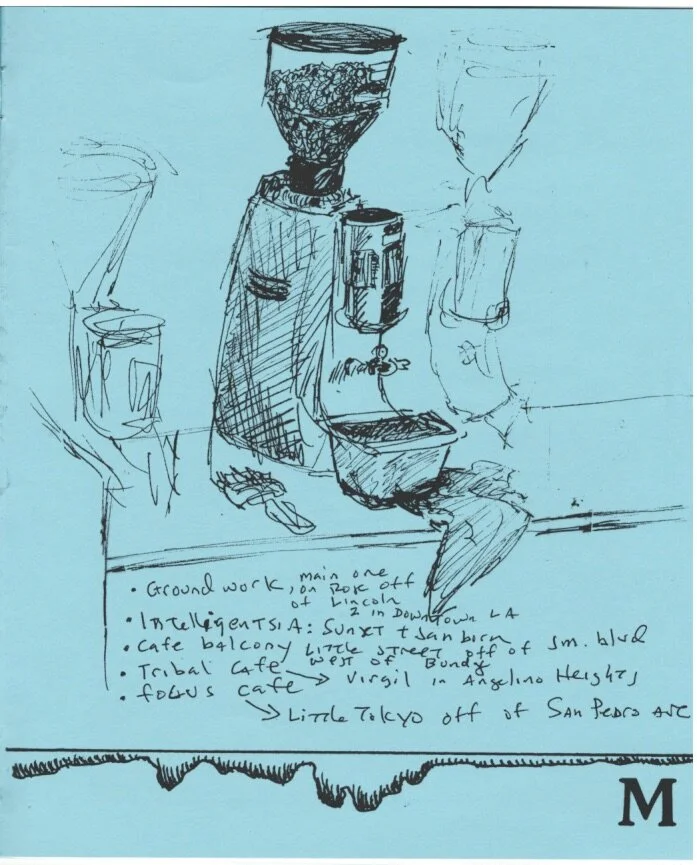 • Ground work, main one
on Rose off
of Lincoln
2 in Downtown LA
• Intelligentsia: Sunset + San born
• Cafe balcony Little street off of Sm. blvd
west of Bundy
• Tribal Cafe → Virgil in Angelino Heights
• fokus cafe
→ Little Tokyo off of San Pedro ave
M